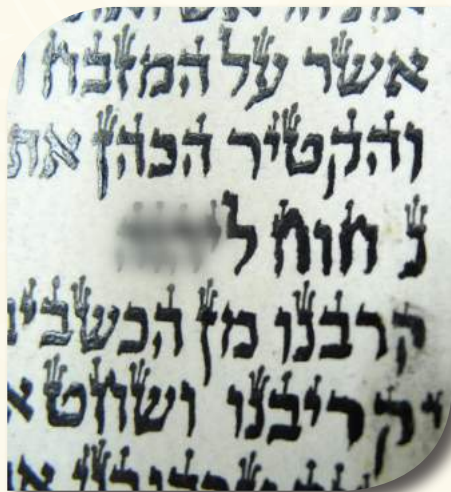 אשר על המזבח ו
והקטיר הכהן את
נ חוח ל
קרבנו מן הכשבי
יקריבנו ושחט א